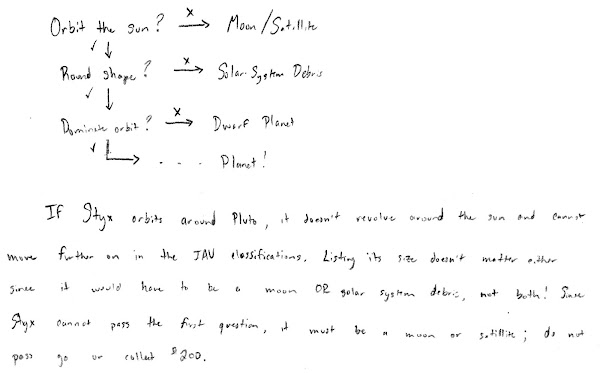 Orbit the sun? x → Moon/Satellite
✓ ↓
Round shape? x → Solar System Debris
✓ ↓
Dominate orbit? x → Dwarf Planet
✓ → .... Planet!
If Styx orbits around Pluto, it doesn't revolve around the sun and cannot
move further on in the IAU classifications. Listing its size doesn't matter either
since it would have to be a moon OR solar system debris, not both! Since
Styx cannot pass the first question, it must be a moon or satillite; do not
pass go or collect $200.